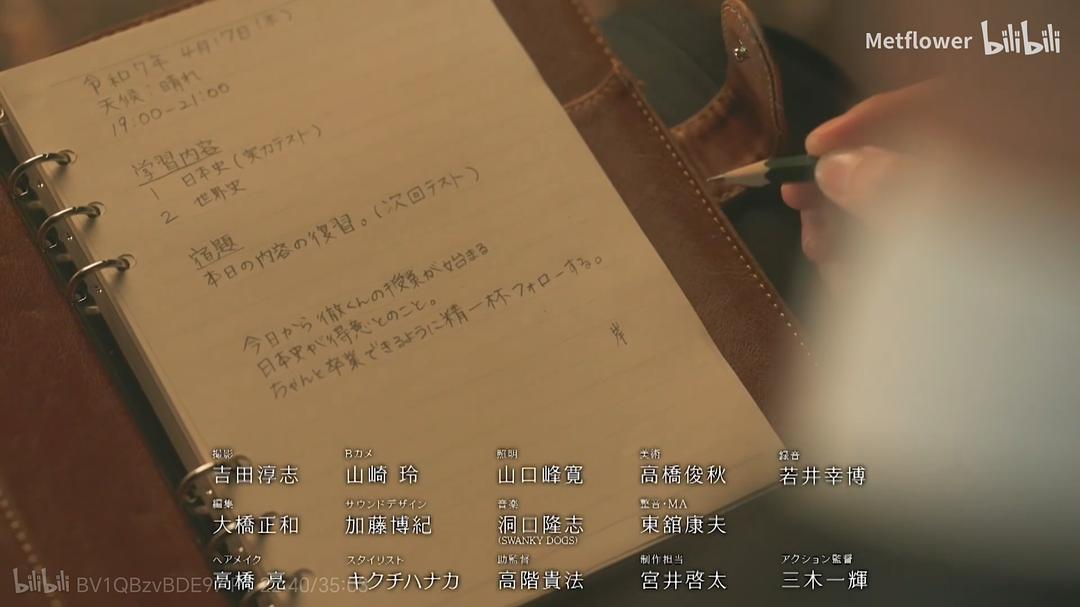 Metflower bilibili
令和7年 4月17日(木)
天候:晴れ
19:00-21:00
学習内容
1 日本史(実力テスト)
2 世界史
宿題
本日の内容の復習。(次回テスト)
今日から徹くんの授業が始まる
日本史が得意とのこと。
ちゃんと卒業できるように精一杯フォローする。
岸
撮影 Bカメ 照明 美術 録音
吉田淳志 山崎 玲 山口峰寛 高橋俊秋 若井幸博
編集 サウンドデザイン 音楽 整音・MA
大橋正和 加藤博紀 洞口隆志 東舘康夫
(SWANKY DOGS)
ヘアメイク スタイリスト 助監督 制作担当 アクション監督
高橋 亮 キクチハナカ 高階貴法 宮井啓太 三木一輝
bilibili